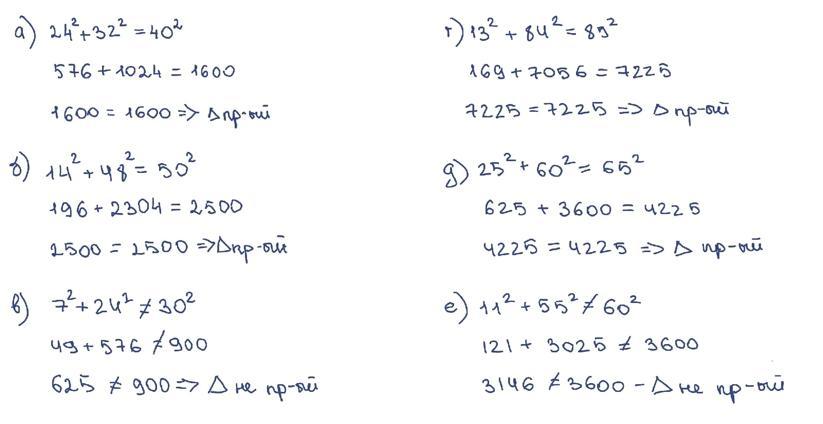 а) 24² + 32² = 40²
576 + 1024 = 1600
1600 = 1600 => Δ пр-ый
б) 14² + 48² = 50²
196 + 2304 = 2500
2500 = 2500 => Δ пр-ый
в) 7² + 24² ≠ 30²
49 + 576 ≠ 900
625 ≠ 900 => Δ не пр-ый
г) 13² + 84² = 85²
169 + 7056 = 7225
7225 = 7225 => Δ пр-ый
д) 25² + 60² = 65²
625 + 3600 = 4225
4225 = 4225 => Δ пр-ый
е) 11² + 55² ≠ 60²
121 + 3025 ≠ 3600
3146 ≠ 3600 - Δ не пр-ый